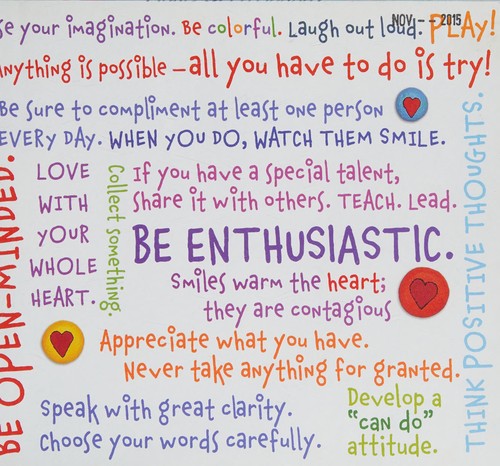 se your imagination. Be colorful. Laugh out loud. PLAy!
NOV - - 2015
anything is possible – all you have to do is try!
Be sure to compliment at least one person
EVERY DAY. WHEN YOU DO, WATCH THEM SMILE.
BE OPEN-MINDED.
LOVE
WITH
YOUR
WHOLE
HEART.
Collect something.
If you have a special talent,
share it with others. TEACH. Lead.
BE ENTHUSIASTIC.
Smiles warm the heart;
they are contagious
Appreciate what you have.
Never take anything for granted.
Speak with great clarity.
Choose your words carefully.
Develop a
"CAN DO"
attitude.
THINK POSITIVE THOUGHTS.